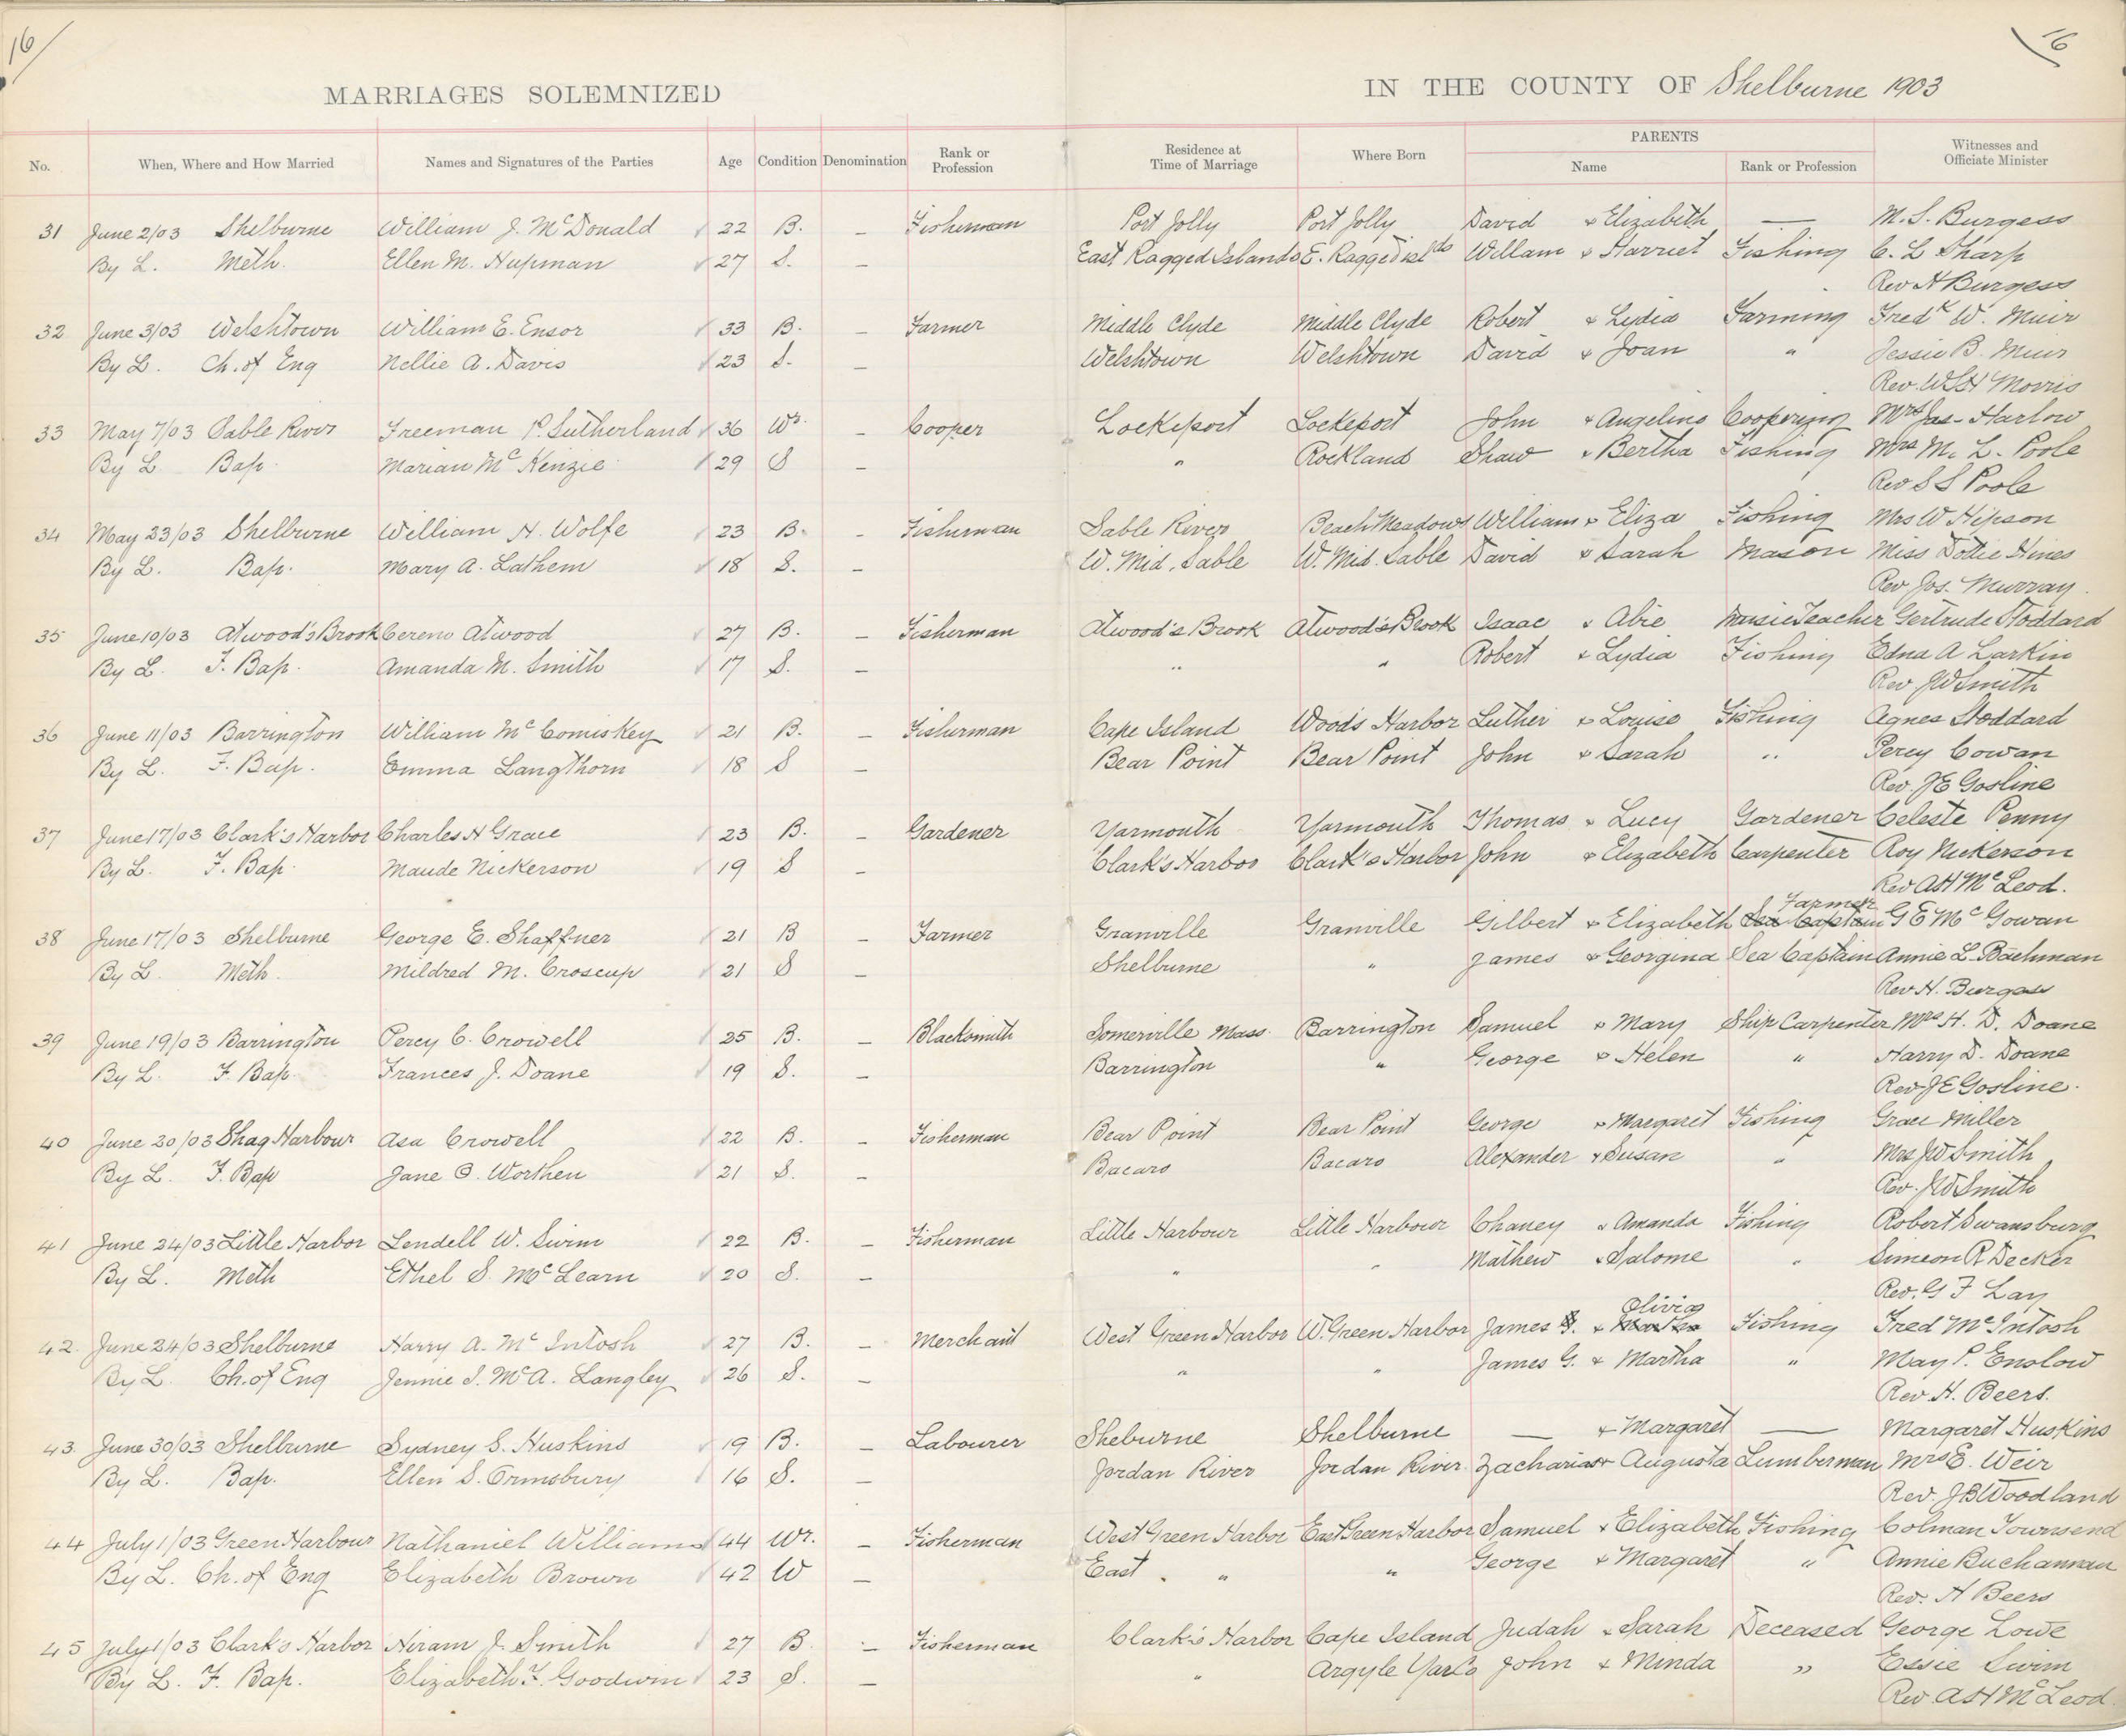 16
16
MARRIAGES SOLEMNIZED IN THE COUNTY OF Shelburne 1903
No. When, Where and How Married Names and Signatures of the Parties Age Condition Denomination Rank or Profession Residence at Time of Marriage Where Born PARENTS Name Rank or Profession Witnesses and Officiate Minister
31 June 2/03 Shelburne William J. McDonald 22 B. — Fisherman Port Jolly Port Jolly David & Elizabeth — M. S. Burgess
By L. Meth. Ellen M. Hupman 27 S. — East Ragged Islands E. Ragged Islds William & Harriet Fishing C. L Sharp
Rev H Burgess
32 June 3/03 Welshtown William E. Ensor 33 B. — Farmer Middle Clyde Middle Clyde Robert & Lydia Farming Fredk W. Muir
By L. Ch. of Eng Nellie A. Davis 23 S. — Welshtown Welshtown David & Joan " Jessie B. Muir
Rev. W S H Morris
33 May 7/03 Sable River Freeman P. Sutherland 36 Wr. — Cooper Lockeport Lockeport John & Angelina Coopering Mrs Jas. Harlow
By L Bap. Marian McKenzie 29 S — " Rockland Shaw & Bertha Fishing Mrs M. L. Poole
Rev S S Poole
34 May 23/03 Shelburne William H. Wolfe 23 B. — Fisherman Sable River Beach Meadows William & Eliza Fishing Mrs W Hipson
By L. Bap. Mary A. Lathem 18 S. — W. Mid. Sable W. Mid. Sable David & Sarah Mason Miss Dottie Hines
Rev Jos. Murray.
35 June 10/03 Atwood's Brook Cereno Atwood 27 B. — Fisherman Atwood's Brook Atwood's Brook Isaac & Abie Music Teacher Gertrude Stoddard
By L. F. Bap. Amanda M. Smith 17 S. — " " Robert & Lydia Fishing Edna A Larkin
Rev J W Smith
36 June 11/03 Barrington William McComiskey 21 B. — Fisherman Cape Island Woods Harbor Luther & Louise Fishing Agnes Stoddard
By L. F. Bap. Emma Langthorn 18 S — Bear Point Bear Point John & Sarah " Percy Cowan
Rev. J E Gosline
37 June 17/03 Clark's Harbor Charles H Grace 23 B. — Gardener Yarmouth Yarmouth Thomas & Lucy Gardener Celeste Penny
By L. F. Bap. Maude Nickerson 19 S — Clark's Harbor Clark's Harbor John & Elizabeth Carpenter Roy Nickerson
Rev A H McLeod.
Farmer
38 June 17/03 Shelburne George E. Shaffner 21 B — Farmer Granville Granville Gilbert & Elizabeth Sea Captain G E McGowan
By L Meth. Mildred M. Croscup 21 S — Shelburne " James & Georgina Sea Captain Annie L. Bachman
Rev H. Burgess
39 June 19/03 Barrington Percy C. Crowell 25 B. — Blacksmith Somerville Mass. Barrington Samuel & Mary Ship Carpenter Mrs H. D. Doane
By L. F. Bap. Frances J. Doane 19 S. — Barrington " George & Helen " Harry D. Doane
Rev J E Gosline.
40 June 20/03 Shag Harbour Asa Crowell 22 B. — Fisherman Bear Point Bear Point George & Margaret Fishing Grace Miller
By L. F. Bap Jane O. Worthen 21 S. — Bacaro Bacaro Alexander & Susan " Mrs J W Smith
Rev. J W Smith
41 June 24/03 Little Harbor Lendell W. Swim 22 B. — Fisherman Little Harbour Little Harbour Chaney & Amanda Fishing Robert Swansburg
By L. Meth Ethel S. McLearn 20 S. — " " Mathew & Salome " Simeon R Decker
Rev. G F Lay
Olivia
42. June 24/03 Shelburne Harry A. McIntosh 27 B. — Merchant West Green Harbor W. Green Harbor James & Fishing Fred McIntosh
By L. Ch. of Eng Jennie I. McA. Langley 26 S. — " " James G. & Martha " May P. Enslow
Rev H. Beers.
43. June 30/03 Shelburne Sydney S. Huskins 19 B. — Labourer Sheburne Shelburne — & Margaret — Margaret Huskins
By L. Bap. Ellen S. Ormsbury 16 S. — Jordan River Jordan River Zacharias & Augusta Lumberman Mrs E. Weir
Rev. J B Woodland
44 July 1/03 Green Harbour Nathaniel Williams 44 Wr. — Fisherman West Green Harbor East Green Harbor Samuel & Elizabeth Fishing Colman Townsend
By L. Ch. of Eng Elizabeth Brown 42 W — East " " " George & Margaret " Annie Buchannan
Rev. H Beers
45 July 1/03 Clark's Harbor Hiram J. Smith 27 B. — Fisherman Clark's Harbor Cape Island Judah & Sarah Deceased George Lowe
By L. F. Bap. Elizabeth F. Goodwin 23 S. — " Argyle Yar Co John & Minda " Essie Swim
Rev A H McLeod